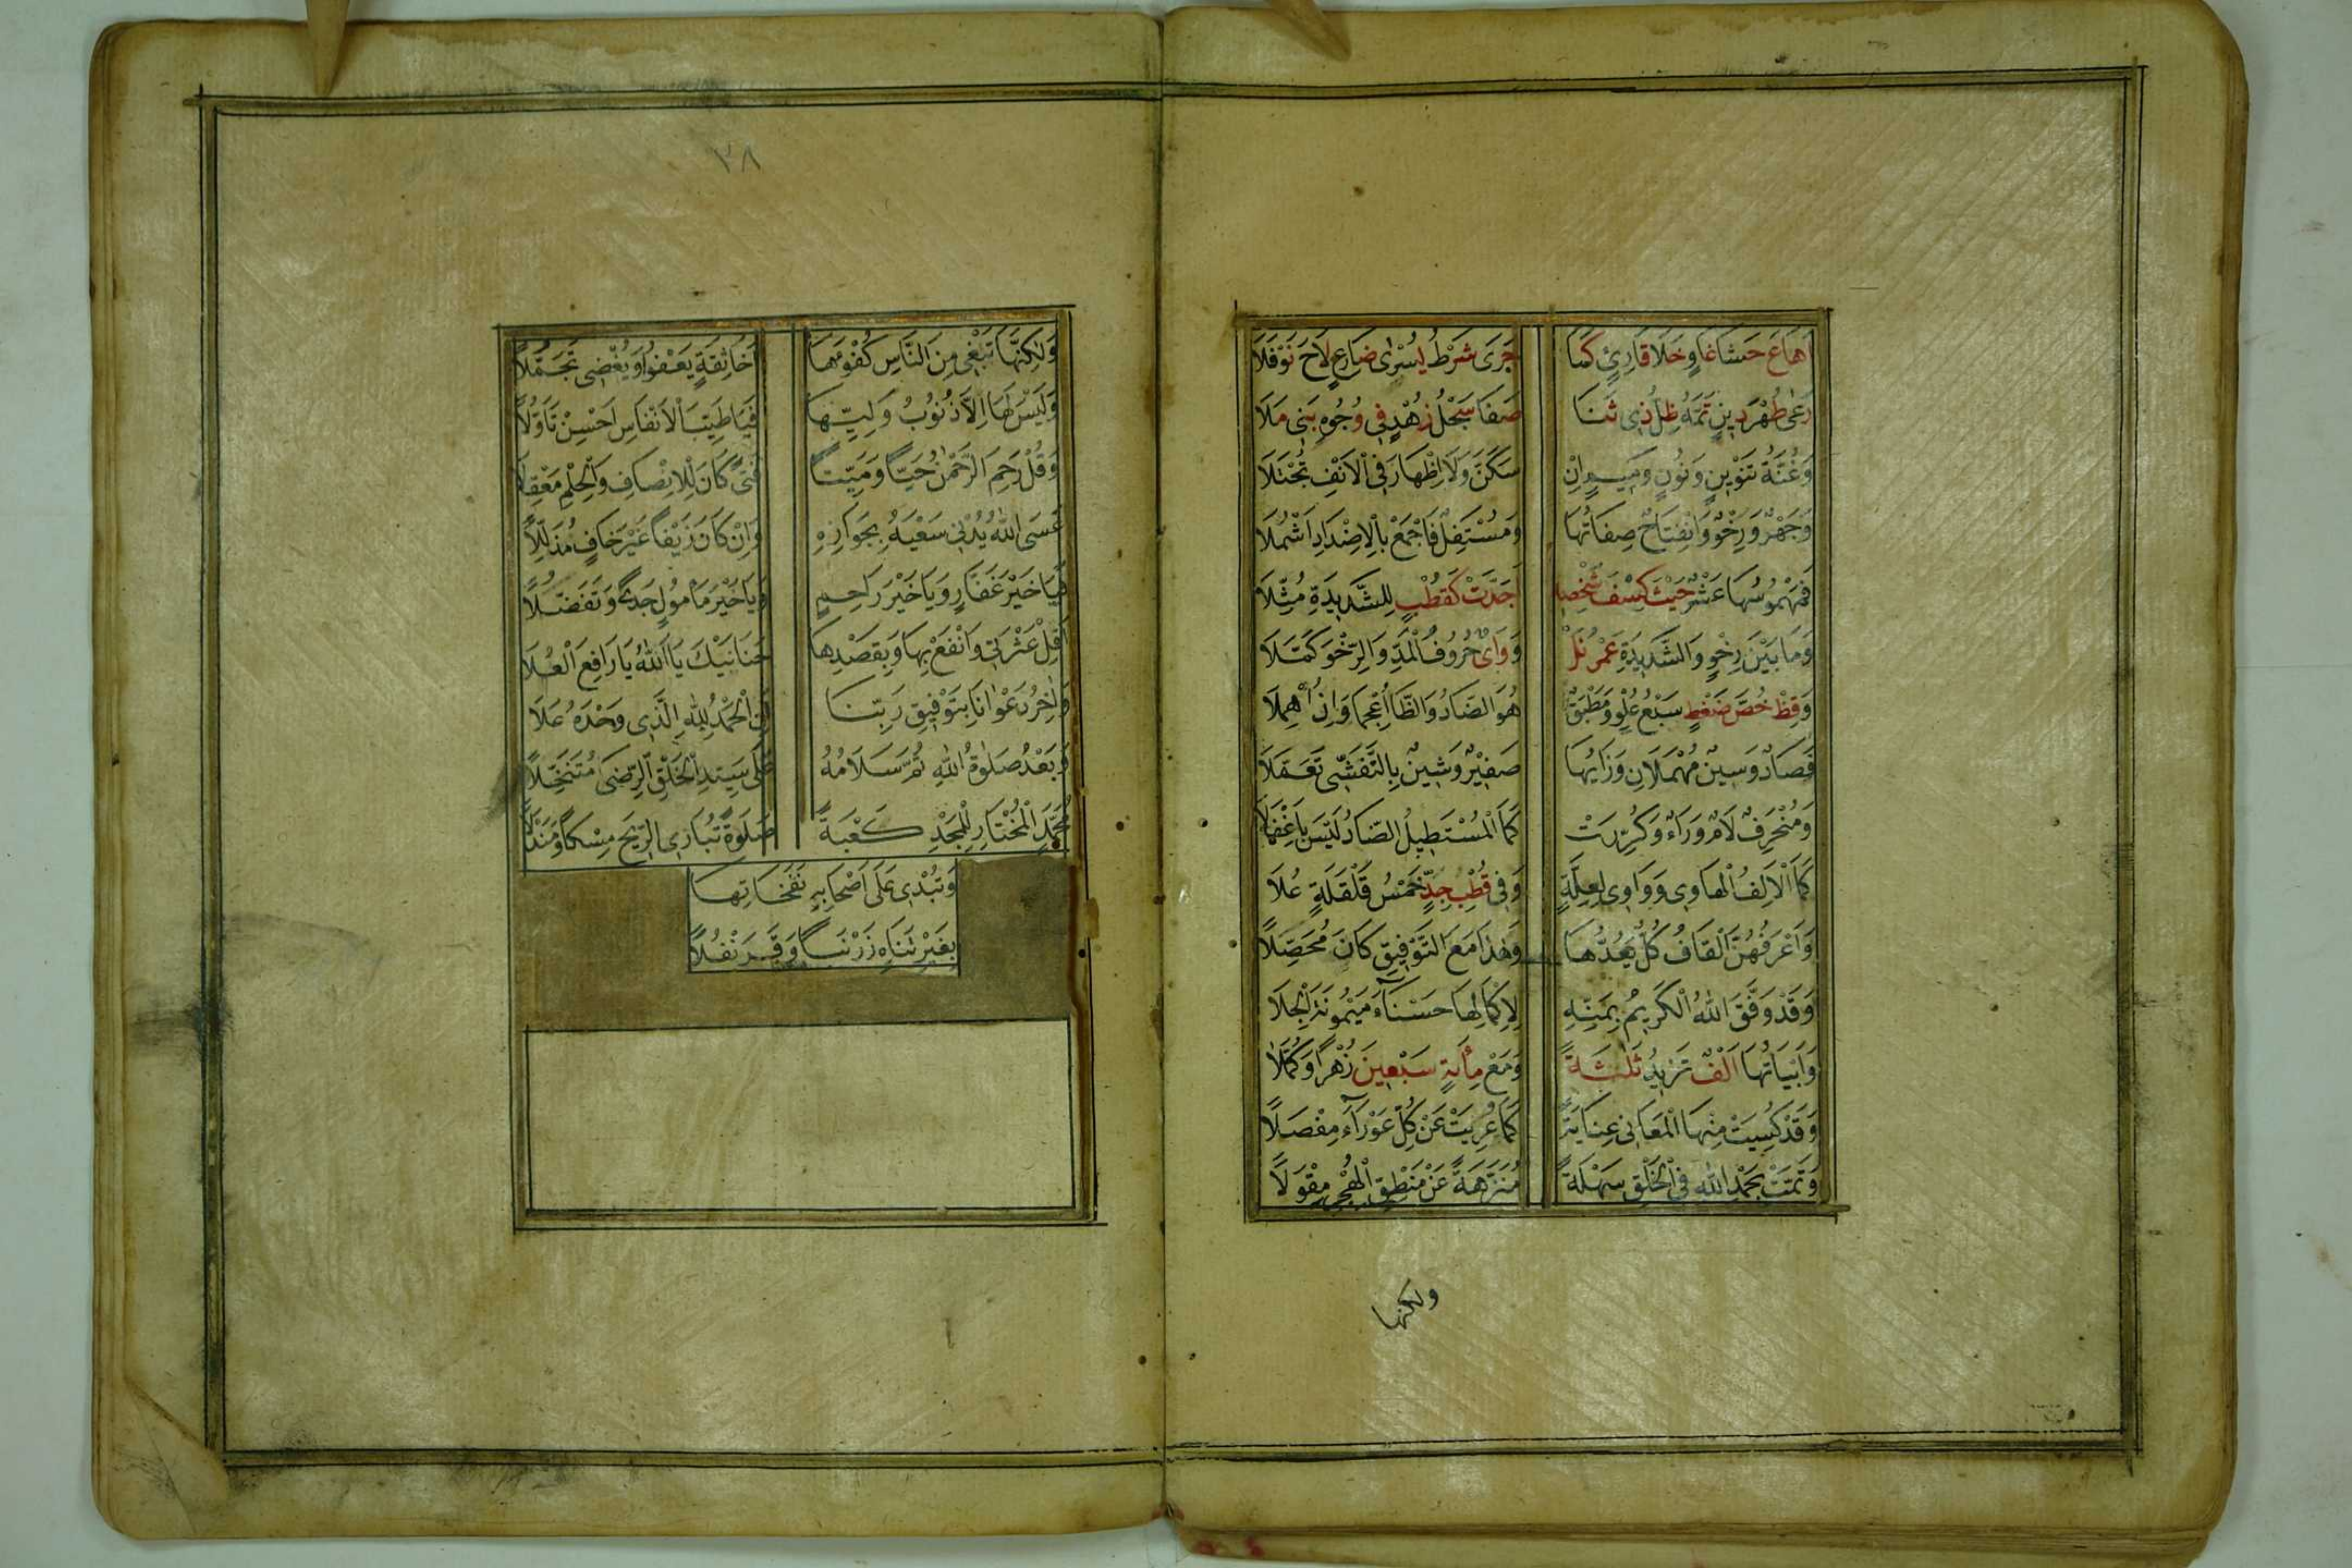 اَهَاعَ حَشَا غَاوٍ خَلَا قَارِئٍ كَمَا جَرَى شَرْطُ يُسْرٰى ضَارِعٍ لَاحَ نَوْفَلَا
رَعٰى طُهْرَ دِينٍ تَمَّهُ ظِلُّ ذِى ثَنَا صَفَا سَجْلُ زُهْدٍ فِى وُجُوهِ بَنِى مَلَا
وَغُنَّةُ تَنْوِينٍ وَنُونٍ وَمِيمٍ اِنْ سَكَنَّ وَلَا اِظْهَارَ فِى الْاَنْفِ تُجْتَلَا
وَجَهْرٌ وَرِخْوٌ وَانْفِتَاحٌ صِفَاتُهَا وَمُسْتَفِلٌ فَاجْمَعْ بِالْاِضْدَادِ اَشْمُلَا
فَمَهْمُوسُهَا عَشْرٌ حَثَتْ كِسْفَ شَخْصِهِ اَجَدَّتْ كَقُطْبٍ لِلشَّدِيدَةِ مُثِّلَا
وَمَا بَيْنَ رِخْوٍ وَالشَّدِيدَةِ عَمْرُ نَلْ وَوَاىٌ حُرُوفُ الْمَدِّ وَالرِّخْوَ كَمَّلَا
وَقِظْ خُصَّ ضَغْطٍ سَبْعُ عُلْوٍ وَمُطْبَقٌ هُوَ الضَّادُ وَالظَّا اُعْجِمَا وَاِنْ اُهْمِلَا
فَصَادٌ وَسِينٌ مُهْمَلَانِ وَزَايُهَا صَفِيْرٌ وَشِينٌ بِالتَّفَشِّى تَعَمَّلَا
وَمُنْحَرِفٌ لَامٌ وَرَاءٌ وَكُرِّرَتْ كَمَا الْمُسْتَطِيلُ الضَّادُ لَيْسَ بِاَغْفَلَا
كَمَا الْاَلِفُ الْهَاوِى وَوَاوِى لِعِلَّةٍ وَفِى قُطْبِ جَدٍّ خَمْسُ قَلْقَلَةٍ عُلَا
وَاَعْرَفُهُنَّ الْقَافُ كُلٌّ يَعُدُّهَا وَهٰذَا مَعَ التَّوْفِيقِ كَانَ مُحَصِّلًا
وَقَدْ وَفَّقَ اللّٰهُ الْكَرِيمُ بِمَنِّهِ لِاِكْمَالِهَا حَسْنَآءَ مَيْمُونَةَ الْجِلَا
وَاَبْيَاتُهَا اَلْفٌ تَزِيدُ ثَلٰثَةً وَمَعْ مِأَيَةٍ سَبْعِينَ زُهْرًا وَكُمَّلَا
وَقَدْ كُسِيَتْ مِنْهَا الْمَعَانِى عِنَايَةً كَمَا عُرِيَتْ عَنْ كُلِّ عَوْرَآءَ مِفْصَلًا
وَتَمَّتْ بِحَمْدِ اللّٰهِ فِى الْخَلْقِ سَهْلَةً مُنَزَّهَةً عَنْ مَنْطِقِ الْهُجْرِ مِقْوَلًا
ولكنها
٣٨
وَلٰكِنَّهَا تَبْغِى مِنَ النَّاسِ كُفْوَهَا اَخَا ثِقَةٍ يَعْفُوا وَيُغْضِى تَجَمُّلًا
وَلَيْسَ لَهَا اِلَّا ذُنُوبُ وَلِيِّهَا فَيَا طَيِّبَ الْاَنْفَاسِ اَحْسِنْ تَاَوُّلًا
وَقُلْ رَحِمَ الرَّحْمٰنُ حَيًّا وَمَيِّتًا فَتًى كَانَ لِلْاِنْصَافِ وَالْحِلْمِ مَعْقِلًا
عَسَى اللّٰهُ يُدْنِى سَعْيَهُ بِجَوَازِهِ وَاِنْ كَانَ زَيْفًا غَيْرَ خَافٍ مُذَلَّلًا
فَيَا خَيْرَ غَفَّارٍ وَيَا خَيْرَ رَاحِمٍ وَيَا خَيْرَ مَأْمُولٍ جَدًى وَتَفَضُّلًا
اَقِلْ عَثْرَتِى وَانْفَعْ بِهَا وَبِقَصْدِهَا حَنَانَيْكَ يَا اَللّٰهُ يَا رَافِعَ الْعُلَا
وَاٰخِرُ دَعْوٰانَا بِتَوْفِيقِ رَبِّنَا اَنِ الْحَمْدُ لِلّٰهِ الَّذِى وَحْدَهُ عَلَا
وَبَعْدُ صَلٰوةُ اللّٰهِ ثُمَّ سَلَامُهُ عَلٰى سَيِّدِ الْخَلْقِ الرِّضٰى مُتَنَخَّلًا
مُحَمَّدِ الْمُخْتَارِ لِلْمَجْدِ كَعْبَةً صَلٰوةً تُبَارِى الرِّيحَ مِسْكًا وَمَنْدَلًا
وَتُبْدِى عَلٰى اَصْحَابِهِ نَفَحَاتِهَا
بِغَيْرِ تَنَاهٍ زَرْنَبًا وَقَرَنْفُلًا